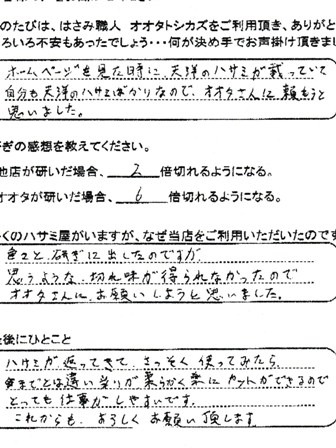 のたびは、はさみ職人 オオタトシカズをご利用頂き、ありがと
ろいろ不安もあったでしょう・・・何が決め手でお声掛け頂きまし
ホームページを見た時に、天洋のハサミが載っていて
自分も天洋のハサミばかりなので、オオタさんに頼もうと
思いました。
ぎの感想を教えてください。
他店が研いだ場合、 2 倍切れるようになる。
オオタが研いだ場合、 6 倍切れるようになる。
くのハサミ屋がいますが、なぜ当店をご利用いただいたのです
色々と研ぎに出したのですが
思うような切れ味が得られなかったので
オオタさんにお願いしようと思いました。
後にひとこと
ハサミが返ってきて、さっそく使ってみたら、
今までとは違い送りが柔らかく楽にカットができるので
とっても仕事がしやすいです。
これからも、よろしくお願い致します